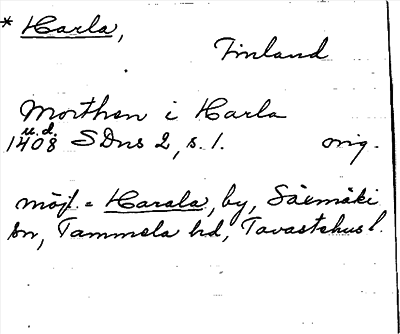 * Harla,
Finland
Morthen i Harla
u.d.
1408 SDns 2, s. 1. orig.
möjl. = Harala, by, Sääxmäki
sn, Tammela hd, Tavastehus l.